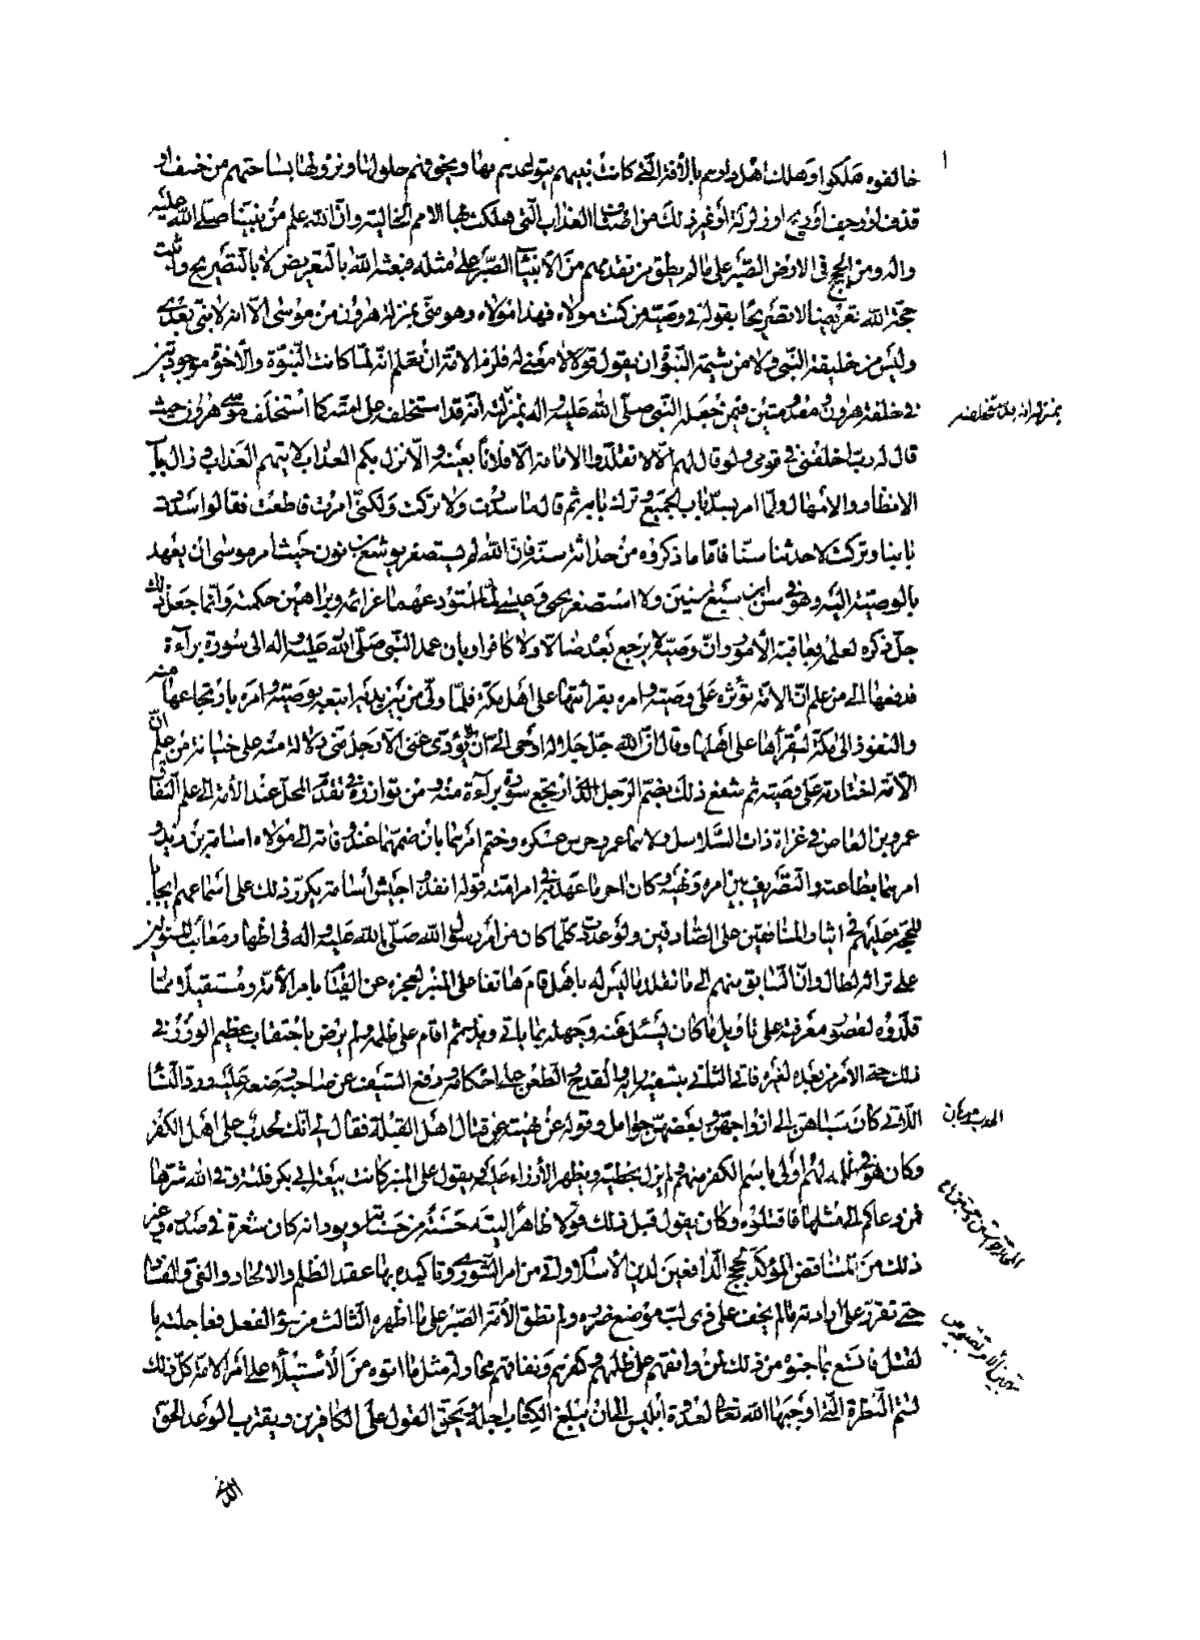 خالفوه هلكوا وهلك اهل دارهم بالآفة التي كانت نبيهم يتوعدهم بها ويخوفهم حلولها ونزولها بساحتهم من خسف او
قذف او رجف او ريح او زلزلة او غير ذلك من اصناف العذاب التي هلكت بها الامم الخالية وان الله علم من نبينا صلى الله عليه
واله ومن الحجج في الارض الصبر على ما لم يطق من تقدمهم من الانبياء الصبر على مثله فبعثه الله بالتعريض لا بالتصريح واثبت
حجة الله تعريضا لا تصريحا بقوله في وصيه من كنت مولاه فهذا مولاه وهو مني بمنزلة هرون من موسى الا انه لا نبي بعدي
وليس من خليقة النبي ولا من شيمة النبوة ان يقول قولا لا معنى له فلزم الامة ان تعلم انه لما كانت النبوة والاخوة موجودتين
في خلقة هرون ومعدومتين فيمن جعله النبي صلى الله عليه واله بمنزلته انه قد استخلفه على امته كما استخلف موسى هرون حيث
قال له رب اخلفني في قومي ولو قال لهم لا تقلدوا الامامة الا فلانا بعينه والا نزل بكم العذاب لاتيهم العذاب وزال باب
الانظار والامهال ولما امر بسد باب الجميع وترك بابه ثم قال ما سددت ولا تركت ولكني امرت فاطعت فقالوا سددت
بابنا وتركت لاحدثنا سنا فاما ما ذكروه من حداثة سنه فان الله لم يستصغر يوشع بن نون حيث امر موسى ان يعهد
بالوصية اليه وهو في سن ابن سبع سنين ولا استصغر يحيى وعيسى لما استودعهما عزائمه وبراهين حكمته وانما جعل ذلك
جل ذكره لعلمه بعاقبة الامور وان وصيه لا يرجع بعده ضالا ولا كافرا وبان عمد النبي صلى الله عليه واله الى سورة براءة
فدفعها الى من علم ان الامة تؤثره على وصيه وامره بقرائتها على اهل مكة فلما ولى من بين يديه اتبعه بوصيه وامره بارتجاعها منه
والنفوذ الى مكة ليقرأها على اهلها وقال ان الله جل جلاله اوحى الي ان لا يؤدي عني الا رجل مني دلالة منه على خيانة من علم ان
الامة اختارته على وصيه ثم شفع ذلك بضم الرجل الذي ارتجع سورة براءة منه ومن توازره في تقدم المحل عند الامة الى علم النفاق
عمرو بن العاص في غزاة ذات السلاسل وولاهما عمرو حرس عسكره وختم امرهما بان ضمهما عند وفاته الى مولاه اسامة بن زيد و
امرهما بطاعته والتصريف بين امره ونهيه وكان اخر ما عهد به في امر امته قوله انفذوا جيش اسامة يكرر ذلك على اسماعهم ايجابا
للحجة عليهم في ايثار المنافقين على الصادقين ولو عددت كلما كان من امر رسول الله صلى الله عليه واله في اظهار معائب المستولين
على تراثه لطال وان السابق منهم الى ما تقلد ما ليس له باهل قام هاتفا على المنبر لعجزه عن القيام بامر الامة ومستقيلا مما
قلدوه لقصور معرفته على تاويل ما كان يسئل عنه وجهله بما ياتي ويذر ثم اقام على ظلمه ولم يرض باحتقاب عظيم الوزر في
ذلك حتى عقد الامر من بعده لغيره فاتى الثاني بتسفيه رايه والقدح والطعن على احكامه ورفع السيف عن صاحبه وضعه عليه ورد النساء
اللاتي كان سباهن الى ازواجهن وبعضهن حوامل وقوله عن نهيته عن قتال اهل القبلة فقال لي انك لحدب على اهل الكفر
وكان هو في ظلمه لهم اولى باسم الكفر منهم ولم يزل يخطيه ويظهر الازراء عليه ويقول على المنبر كانت بيعة ابي بكر فلتة وقى الله شرها
فمن دعاكم الى مثلها فاقتلوه وكان يقول قبل ذلك قولا ظاهرا ليته حسنة من حسناته ويود انه كان شعرة في صدره وغير
ذلك من المتناقض المؤكد لحجج الدافعين لدين الاسلام واتى من امر الشورى وتاكيده بها عقد الظلم والالحاد والغي والفساد
حتى تقرر على ارادته ما لم يخف على ذي لب موضع ضرره ولم تطق الامة الصبر على ما اظهره الثالث من سوء الفعل فعاجلته با
لقتل فاتسع بما جنوه من ذلك لمن وافقهم على ظلمهم وكفرهم ونفاقهم محاولة مثل ما اتوه من الاستيلاء على امر الامة كل ذلك
لتتم النظرة التي اوجبها الله تعالى لعدوه ابليس الى ان يبلغ الكتاب اجله ويحق القول على الكافرين ويقترب الوعد الحق
الذي